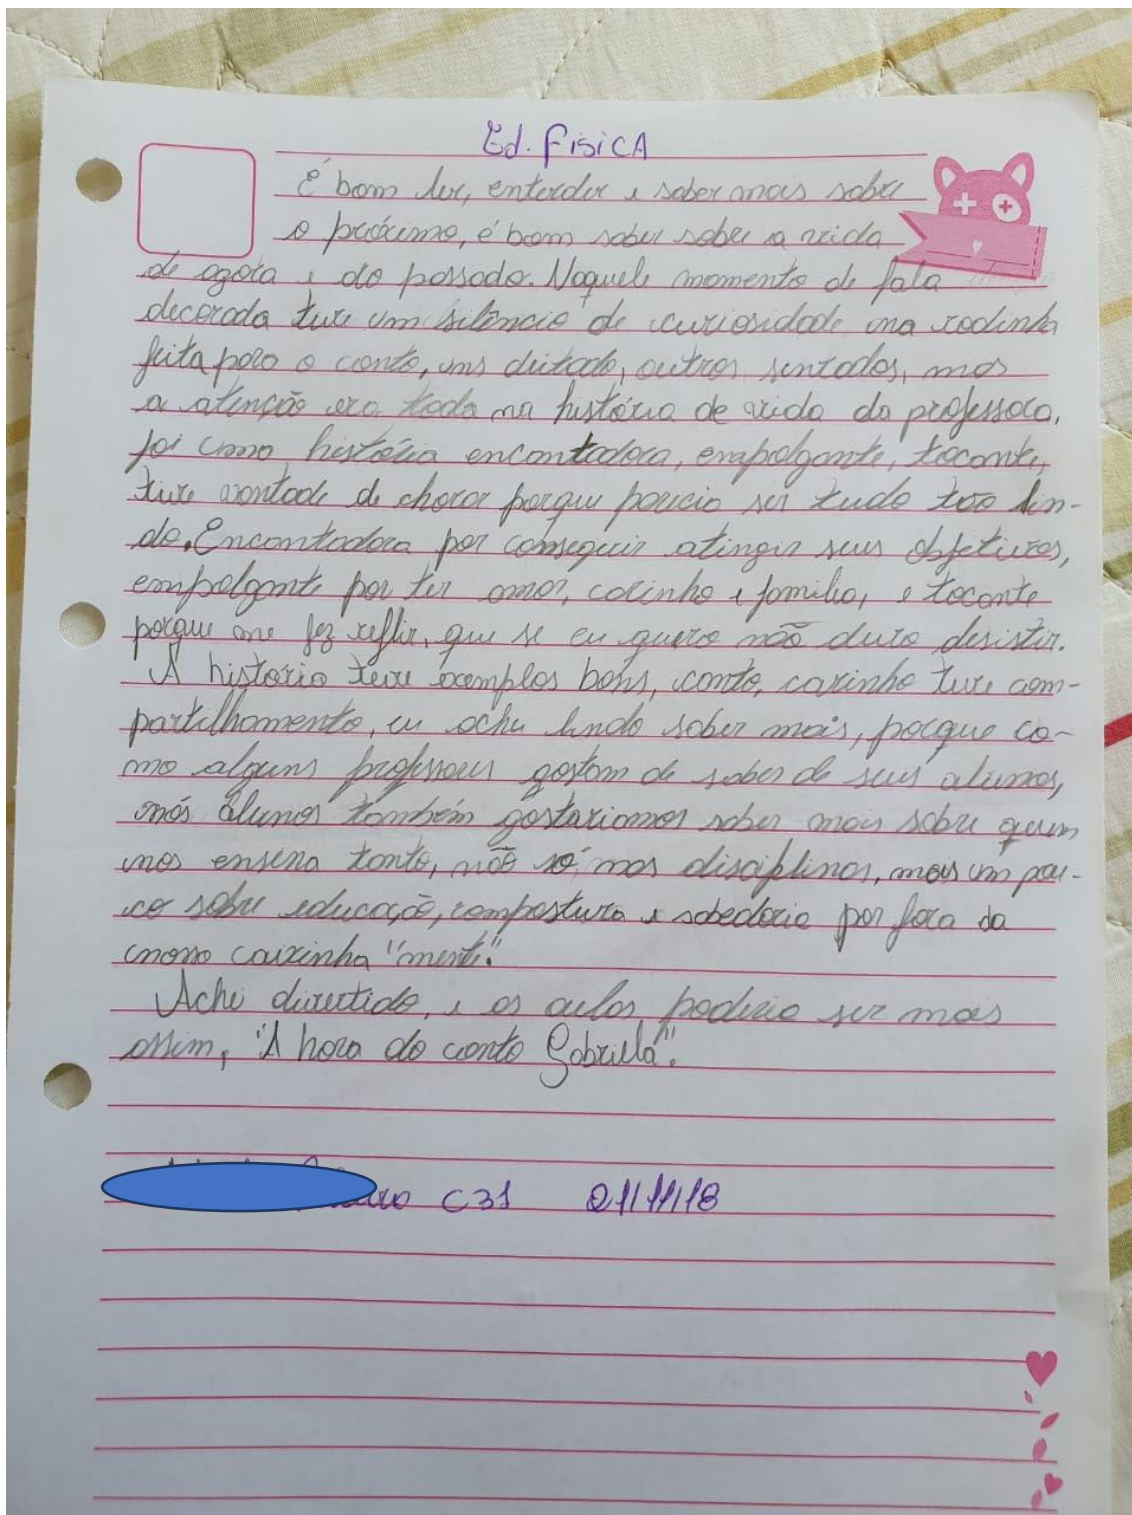 Ed. FísicA
É bom ler, entender e saber mais sobre
o próximo, é bom saber sobre a vida
de agora e do passado. Naquele momento de fala
decorada teve um silêncio de curiosidade na rodinha
feita para o conto, uns deitado, outros sentados, mas
a atenção era toda na história de vida da professora,
foi uma história encantadora, empolgante, tocante,
tive vontade de chorar porque parecia ser tudo tão lin-
do. Encantadora por conseguir atingir seus objetivos,
empolgante por ter amor, carinho e família, e tocante
porque me fez reflir, que se eu quero não devo desistir.
A história teve exemplos bons, conto, carinho teve com-
partilhamento, eu achei lindo saber mais, porque co-
mo alguns professores gostam de saber de seus alunos,
nós alunos também gostariamos saber mais sobre quem
nos ensina tanto, não só, nas disciplinas, mais um pou-
co sobre educação, compostura e sabedoria por fora da
nossa caixinha "mente".
Achei divertido, e as aulas poderia ser mais
assim, "A hora do conto Gabriela".
C31 21/11/18